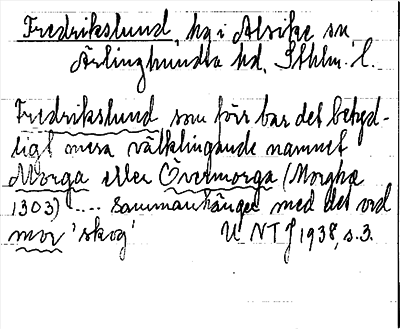 Fredrikslund, hg i Alsike sn,
Ärlinghundra hd, Sthlm. l.
Fredrikslund som förr bar det betyd-
ligt mera välklingande namnet
Morga eller Övermorga (Morghæ
1303) .... Sammanhänger med det ord
mor 'skog' U NTJ 1938, s. 3.